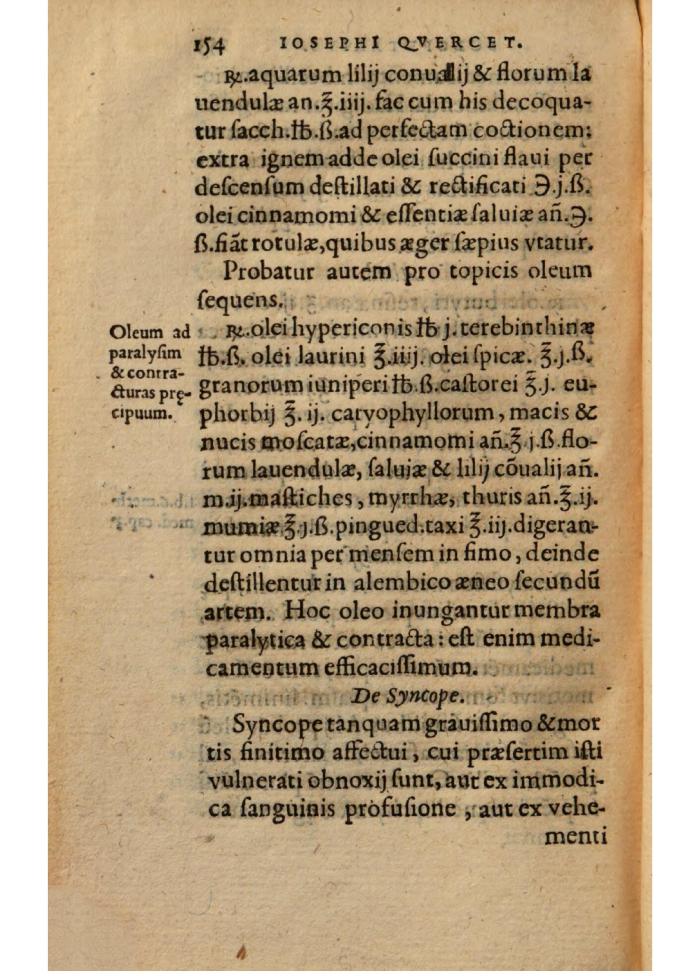 154 IOSEPHI QVERCET.
℞.aquarum lilij conuallij & florum la
uendulæ an.℥.iiij. fac cum his decoqua-
tur ſacch.℔.ß.ad perfectam coctionem:
extra ignem adde olei ſuccini flaui per
deſcenſum deſtillati & rectificati ℈.j.ß.
olei cinnamomi & eſſentiæ ſaluiæ añ.℈.
ß.fiāt rotulæ,quibus æger ſæpius vtatur.
Probatur autem pro topicis oleum
ſequens.
Oleum ad
paralyſim
& contra-
cturas prę-
cipuum.
℞.olei hypericonis ℔ j. terebinthinæ
℔.ß. olei laurini ℥.iiij. olei ſpicæ. ℥.j.ß.
granorum iuniperi ℔.ß.caſtorei ℥.j. eu-
phorbij ℥. ij. caryophyllorum, macis &
nucis moſcatæ,cinnamomi añ.℥ j.ß.flo-
rum lauendulæ, ſaluiæ & lilij cōualij añ.
m.ij.maſtiches, myrrhæ, thuris añ.℥.ij.
mumiæ ℥.j.ß.pingued.taxi ℥.iij.digeran-
tur omnia per menſem in fimo, deinde
deſtillentur in alembico æneo ſecundū
artem. Hoc oleo inungantur membra
paralytica & contracta: eſt enim medi-
camentum efficaciſſimum.
De Syncope.
Syncope tanquam grauiſſimo & mor
tis finitimo affectui, cui præſertim iſti
vulnerati obnoxij ſunt, aut ex immodi-
ca ſanguinis profuſione, aut ex vehe-
menti